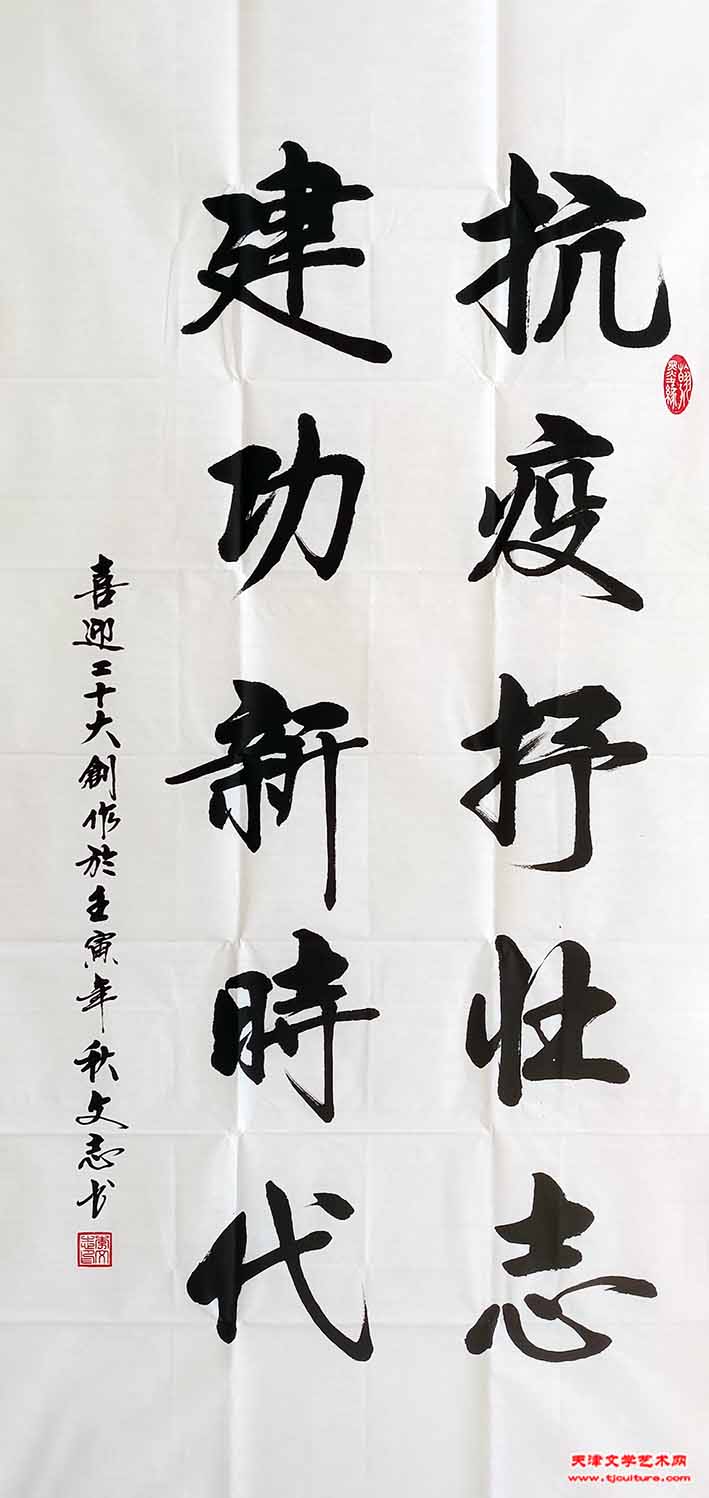 抗疫抒壮志
建功新時代
喜迎二十大創作於壬寅年秋文志书
翰墨缘
天津文学艺术网
www.tjculture.com